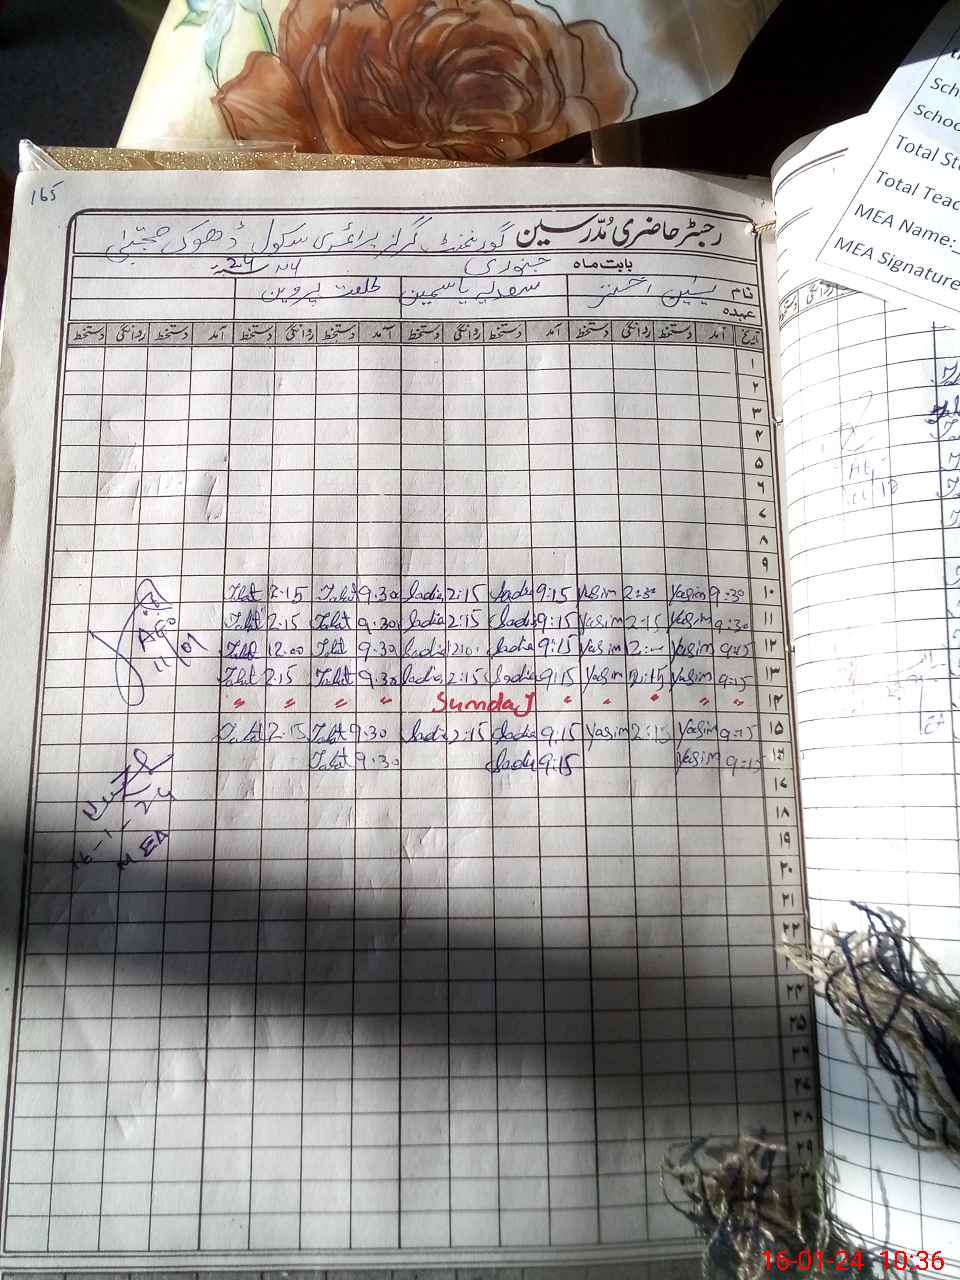 165
رجسٹر حاضری مُدرسین گورنمنٹ گرلز پرائمری سکول ڈھوک
بابت ماہ جنوری 24
نام یٰسین اختر سعدیہ یاسمین طلعت پروین
عہدہ
تاریخ آمد دستخط روانگی دستخط آمد دستخط روانگی دستخط آمد دستخط روانگی دستخط آمد دستخط روانگی دستخط
۱
۲
۳
۴
۵
۶
۷
۸
۹
Talat 2:15 Talat 9.30 Sadia 2:15 Sadia 9:15 Yasim 2:30 Yasim 9:30 ۱۰
Talat 2:15 Talat 9.30 Sadia 2:15 Sadia 9:15 Yasim 2:15 Yasim 9:30 ۱۱
Talat 12.00 Talat 9.30 Sadia Sadia 9:15 Yasim Yasim 9:15 ۱۲
Talat 2:15 Talat 9.30 Sadia 2:15 Sadia 9:15 Yasim 2:15 Yasim 9:15 ۱۳
" " " " Sunday " " " " " ۱۴
Talat 2:15 Talat 9.30 Sadia 2:15 Sadia 9:15 Yasim 2:15 Yasim 9:15 ۱۵
Talat 9.30 Sadia 9:15 Yasim 9:15
AEO
11/01
16-1-24
MEA
۱۸
۱۹
۲۰
۲۱
۲۲
۲۴
۲۵
۲۶
۲۷
۲۸
۲۹
Total
Total
MEA Name:
MEA Signature
16-01-24 10:36